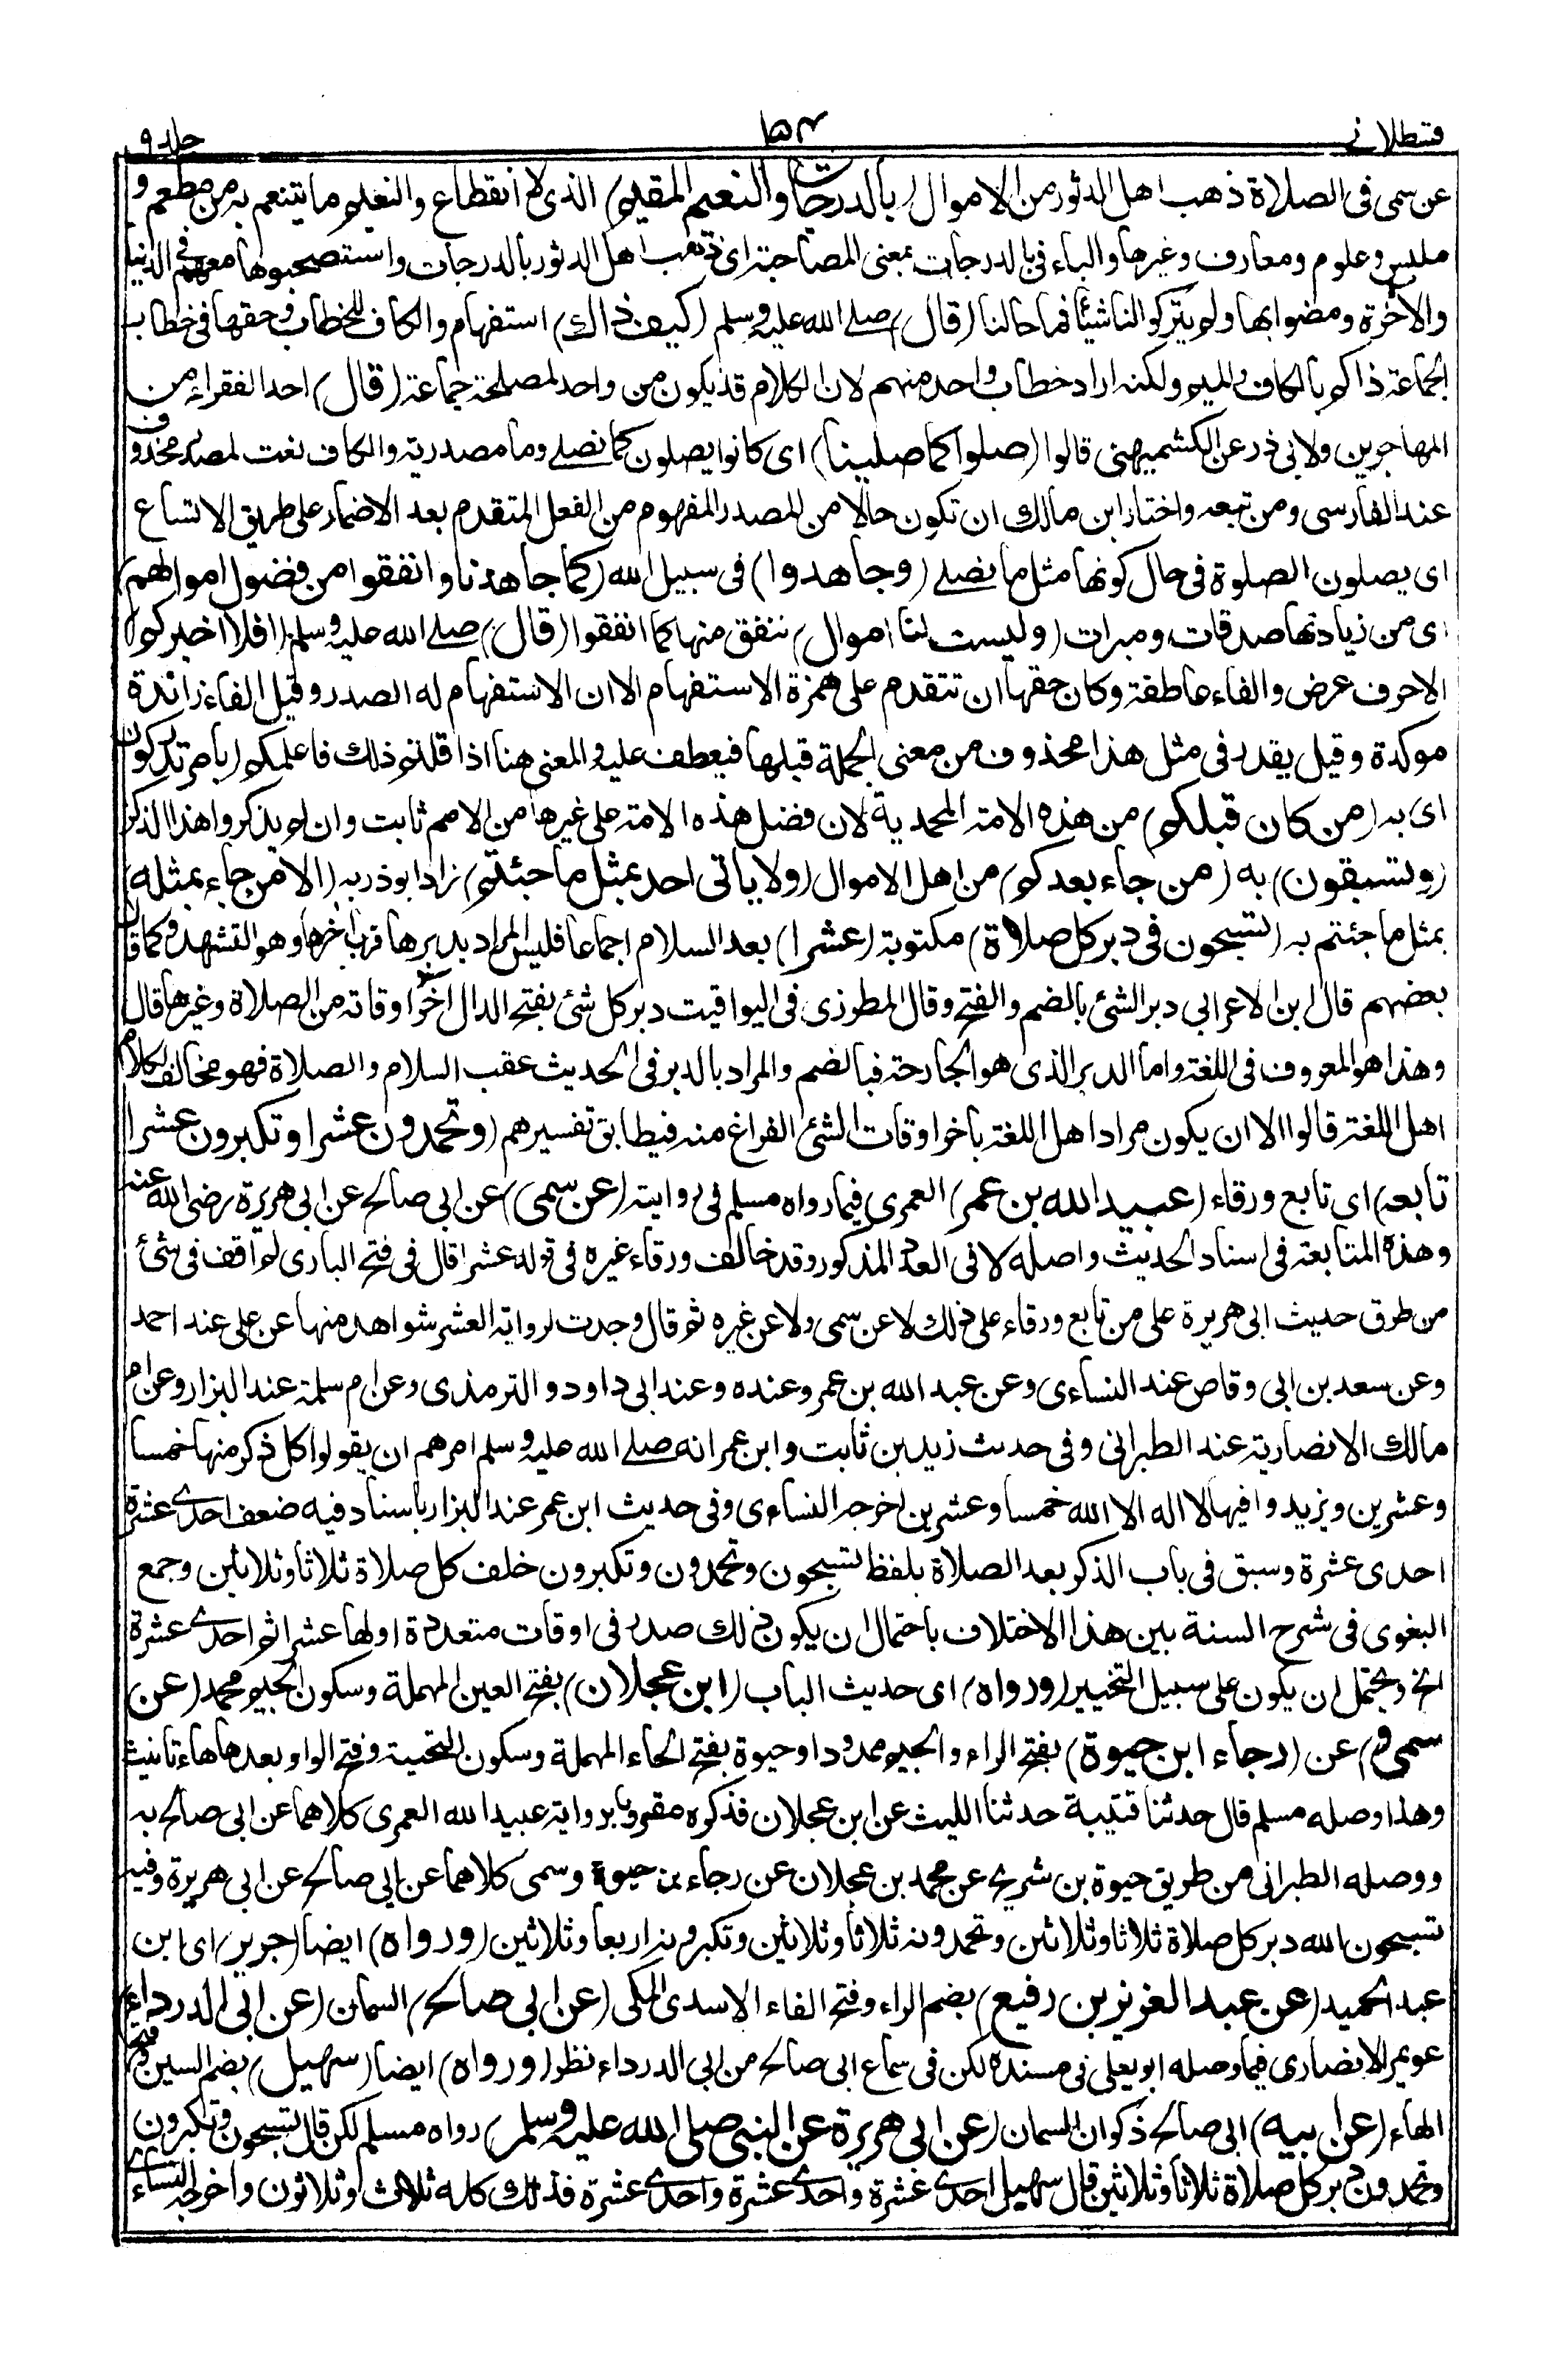 قسطلاني
١٥٤
جلد ٩
عن سمى فى الصلاة ذهب اهل الدثور من الاموال (بالدرجات والنعيم المقيم) الذى لا انقطاع والنعيم ما يتنعم به من مطعم و
ملبس وعلوم ومعارف وغيرها والباء فى بالدرجات بمعنى المصاحبة اى ذهب اهل الدثور بالدرجات واستصحبوها معهم فى الدنيا
والآخرة ومضوا بها ولم يتركوا لنا شيئا فما حالنا (قال) صلى الله عليه وسلم (كيف ذاك) استفهام والكاف للخطاب وحقها فى خطاب
الجماعة ذاكم بالكاف والميم ولكنه اراد خطاب واحد منهم لان الكلام قد يكون من واحد لمصلحة جماعة (قال) احد الفقراء من
المهاجرين ولابى ذر عن الكشميهنى قالوا (صلوا كما صلينا) اى كانوا يصلون كما نصلى وما مصدرية والكاف نعت لمصدر محذوف
عند الفارسى ومن تبعه واختار ابن مالك ان تكون حالا من المصدر المفهوم من الفعل المتقدم بعد الاضمار على طريق الاتساع
اى يصلون الصلوة فى حال كونها مثل ما نصلى (وجاهدوا) فى سبيل الله (كما جاهدنا وانفقوا من فضول اموالهم)
اى من زيادتها صدقات ومبرات (وليست لنا اموال) ننفق منها كما انفقوا (قال) صلى الله عليه وسلم (افلا اخبركم)
الاحرف عرض والفاء عاطفة وكان حقها ان تتقدم على همزة الاستفهام الا ان الاستفهام له الصدر وقيل الفاء زائدة
موكدة وقيل يقدر فى مثل هذا محذوف من معنى الجملة قبلها فيعطف عليه والمعنى هنا اذا قلتم ذلك فاعلمكم (بامر تدركون
اى به (من كان قبلكم) من هذه الامة المحمدية لان فضل هذه الامة على غيرها من الامم ثابت وان لم يذكروا هذا الذكر
(وتسبقون) به (من جاء بعدكم) من اهل الاموال (ولا ياتى احد بمثل ما جئتم) زاد ابو ذر به (الا من جاء بمثله)
بمثل ما جئتم به (تسبحون فى دبر كل صلاة) مكتوبة (عشرا) بعد السلام اجماعا فليس المراد بدبرها قرب آخرها وهو التشهد كما قال
بعضهم قال ابن الاعرابى دبر الشئ بالضم والفتح وقال المطرزى فى اليواقيت دبر كل شئ بفتح الدال آخر اوقاته من الصلاة وغيرها قال
وهذا هو المعروف فى اللغة واما الدبر الذى هو الجارحة فبالضم والمراد بالدبر فى الحديث عقب السلام والصلاة فهو مخالف لكلام
اهل اللغة قالوا الا ان يكون مراد اهل اللغة بآخر اوقات الشئ الفراغ منه فيطابق تفسيرهم (وتحمدون عشرا وتكبرون عشرا
تابعه) اى تابع ورقاء (عبيد الله بن عمر) العمرى فيما رواه مسلم فى روايته (عن سمى) عن ابى صالح عن ابى هريرة رضى الله عنه
وهذه المتابعة فى اسناد الحديث واصله لا فى العدد المذكور وقد خالف ورقاء غيره فى قوله عشرا قال فى فتح البارى لم اقف فى شئ
من طرق حديث ابى هريرة على من تابع ورقاء على ذلك لا عن سمى ولا عن غيره ثم قال وجدت لرواية العشر شواهد منها عن على عند احمد
وعن سعد بن ابى وقاص عند النساءى وعن عبد الله بن عمر وعنده وعند ابى داود والترمذى وعن ام سلمة عند البزار وعن ام
مالك الانصارية عند الطبرانى وفى حديث زيد بن ثابت وابن عمر انه صلى الله عليه وسلم امرهم ان يقولوا كل ذكر منها خمسا
وعشرين ويزيدوا فيها لا اله الا الله خمسا وعشرين اخرجه النساءى وفى حديث ابن عمر عند البزار باسناد فيه ضعف احدى عشرة
احدى عشرة وسبق فى باب الذكر بعد الصلاة بلفظ تسبحون وتحمدون وتكبرون خلف كل صلاة ثلاثا وثلاثين وجمع
البغوى فى شرح السنة بين هذا الاختلاف باحتمال ان يكون ذلك صدر فى اوقات متعددة اولها عشرا ثم احدى عشرة
الخ ويحتمل ان يكون على سبيل التخيير (ورواه) اى حديث الباب (ابن عجلان) بفتح العين المهملة وسكون الجيم محمد (عن
سمى و) عن (رجاء ابن حيوة) بفتح الراء والجيم ممدودا وحيوة بفتح الحاء المهملة وسكون التحتية وفتح الواو بعدها هاء تانيث
وهذا وصله مسلم قال حدثنا قتيبة حدثنا الليث عن ابن عجلان فذكره مقرونا برواية عبيد الله العمرى كلاهما عن ابى صالح به
ووصله الطبرانى من طريق حيوة بن شريح عن محمد بن عجلان عن رجاء بن حيوة وسمى كلاهما عن ابى صالح عن ابى هريرة وفيه
تسبحون الله دبر كل صلاة ثلاثا وثلاثين وتحمدونه ثلاثا وثلاثين وتكبرونه اربعا وثلاثين (ورواه) ايضا (جرير) اى ابن
عبد الحميد (عن عبد العزيز بن رفيع) بضم الراء وفتح الفاء الاسدى المكى (عن ابى صالح) السمان (عن ابى الدرداء)
عويمر الانصارى فيما وصله ابو يعلى فى مسنده لكن فى سماع ابى صالح من ابى الدرداء نظر (ورواه) ايضا (سهيل) بضم السين وفتح
الهاء (عن ابيه) ابى صالح ذكوان السمان (عن ابى هريرة عن النبى صلى الله عليه وسلم) رواه مسلم لكن قال تسبحون وتكبرون
وتحمدون دبر كل صلاة ثلاثا وثلاثين قال سهيل احدى عشرة واحدى عشرة واحدى عشرة فذلك كله ثلاث وثلاثون واخرجه النساءى